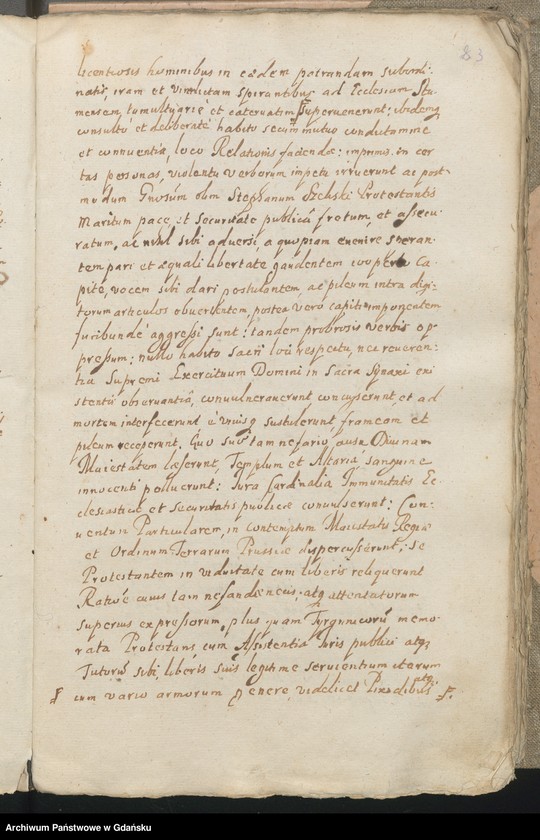 83
licentiosis hominibus in eadem patrandam subordi-
natis, iram et vindictam spirantibus ad Ecclesiam Stu-
mensem, tumultuarie et catervatim supervenerunt; ibidemq
consulto et deliberate habito secum mutuo conductamine
et conniventia, loco Relationis faciendae: imprimis in cer
tas personas, violento verborum impetu irruerunt ac post-
modum Gnosum olim Stephanum Protestantis
Maritum pace, et securitate publica fretum, et assecu-
ratum, ac nihil sibi adversi, a quopiam evenire speran-
tem pari et aequali libertate gaudentem aperto Ca-
pite, vocem sibi dari postulantem, ac pileum intra digi-
torum articulos obvertentem, postea vero capiti imponentem
furibunde aggressi sunt: tandem probrosis verbis op-
pressum: nullo habito sacri loci respectu, nec reveren-
tia Supremi Exercituum Domini in Sacra Synaxi exi
stentis observantia, convulnerarunt concusserunt, et ad
mortem interfecerunt sustulerunt, frameam et
pileum receperunt. Quo suo tam nefario ausu Divinam
Maiestatem laeserunt, Templum et Altaria sanguine
innocenti polluerunt: Iura Cardinalia Immunitatis Ec-
clesiasticae et Securitatis publicae convulserunt: Con-
ventum Particularem, in contemptum Maiestatis Regiae
et Ordinum Terrarum Prussiae disperserunt; se
Protestantem in viduitate cum liberis reliquerunt
Ratione cuius tam nefandi necis, atq attentatorum
superius expressorum, plus quam Tyrannicorum memo-
rata Protestans, cum Assistentia Iuris publici atq
Tutorum sibi, liberis suis legitime servientium iterum
cum vario armorum genere, videlicet Pixidibus atq